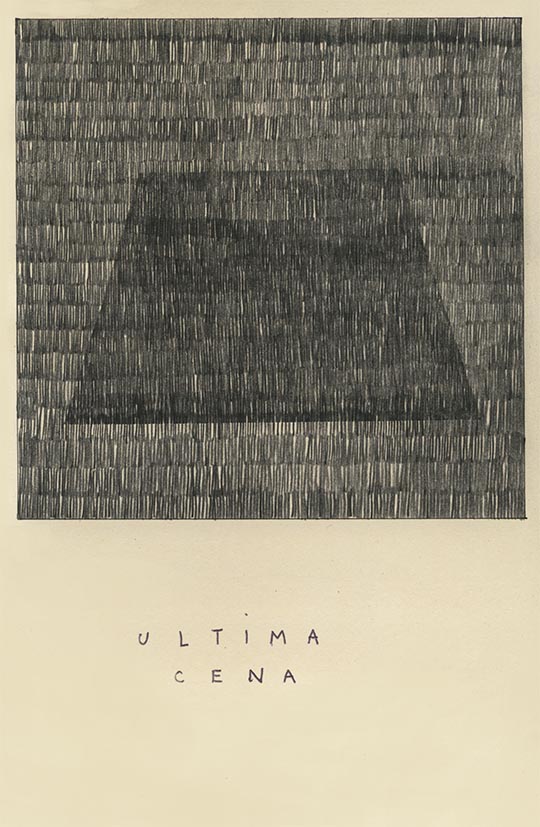 ULTiMA
CENA